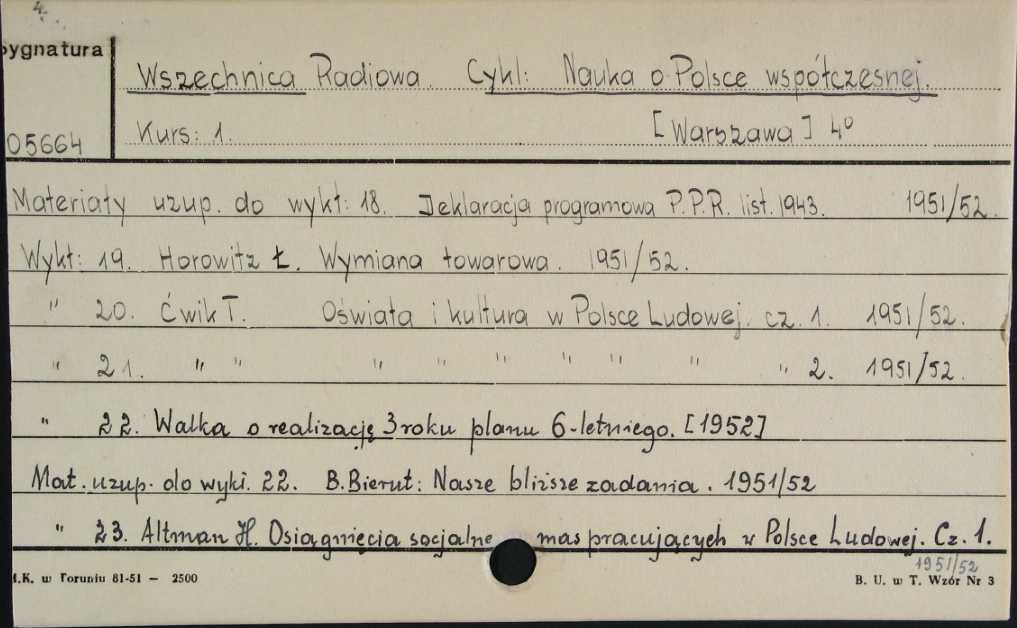 4.
Sygnatura
Wszechnica Radiowa. Cykl: Nauka o Polsce współczesnej.
05664
Kurs: 1. [Warszawa] 4º
Materiały uzup. do wykł: 18. Deklaracja programowa P.P.R. list. 1943. 1951/52.
Wykł: 19. Horowitz Ł. Wymiana towarowa. 1951/52.
" 20. Ćwik T. Oświata i kultura w Polsce Ludowej. cz. 1. 1951/52.
" 21. " " " " " " " " " 2. 1951/52.
" 22. Walka o realizację 3 roku planu 6-letniego. [1952]
Mat. uzup. do wykł. 22. B. Bierut: Nasze bliższe zadania. 1951/52
" 23. Altman H. Osiągnięcia socjalne mas pracujących w Polsce Ludowej. Cz. 1.
1951/52
I.K. w Toruniu 81-51 — 2500 B. U. w T. Wzór Nr 3